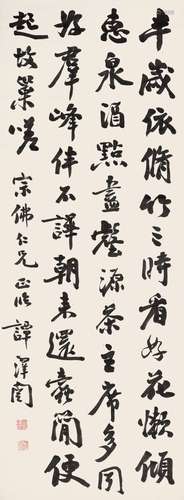 半歲依脩竹三時看好花懶傾
惠泉酒點盡壑源茶主席多同
好羣峰伴不譁朝來還舂簡便
起故巢嗟
宗佛仁兄正臨 譚澤闓